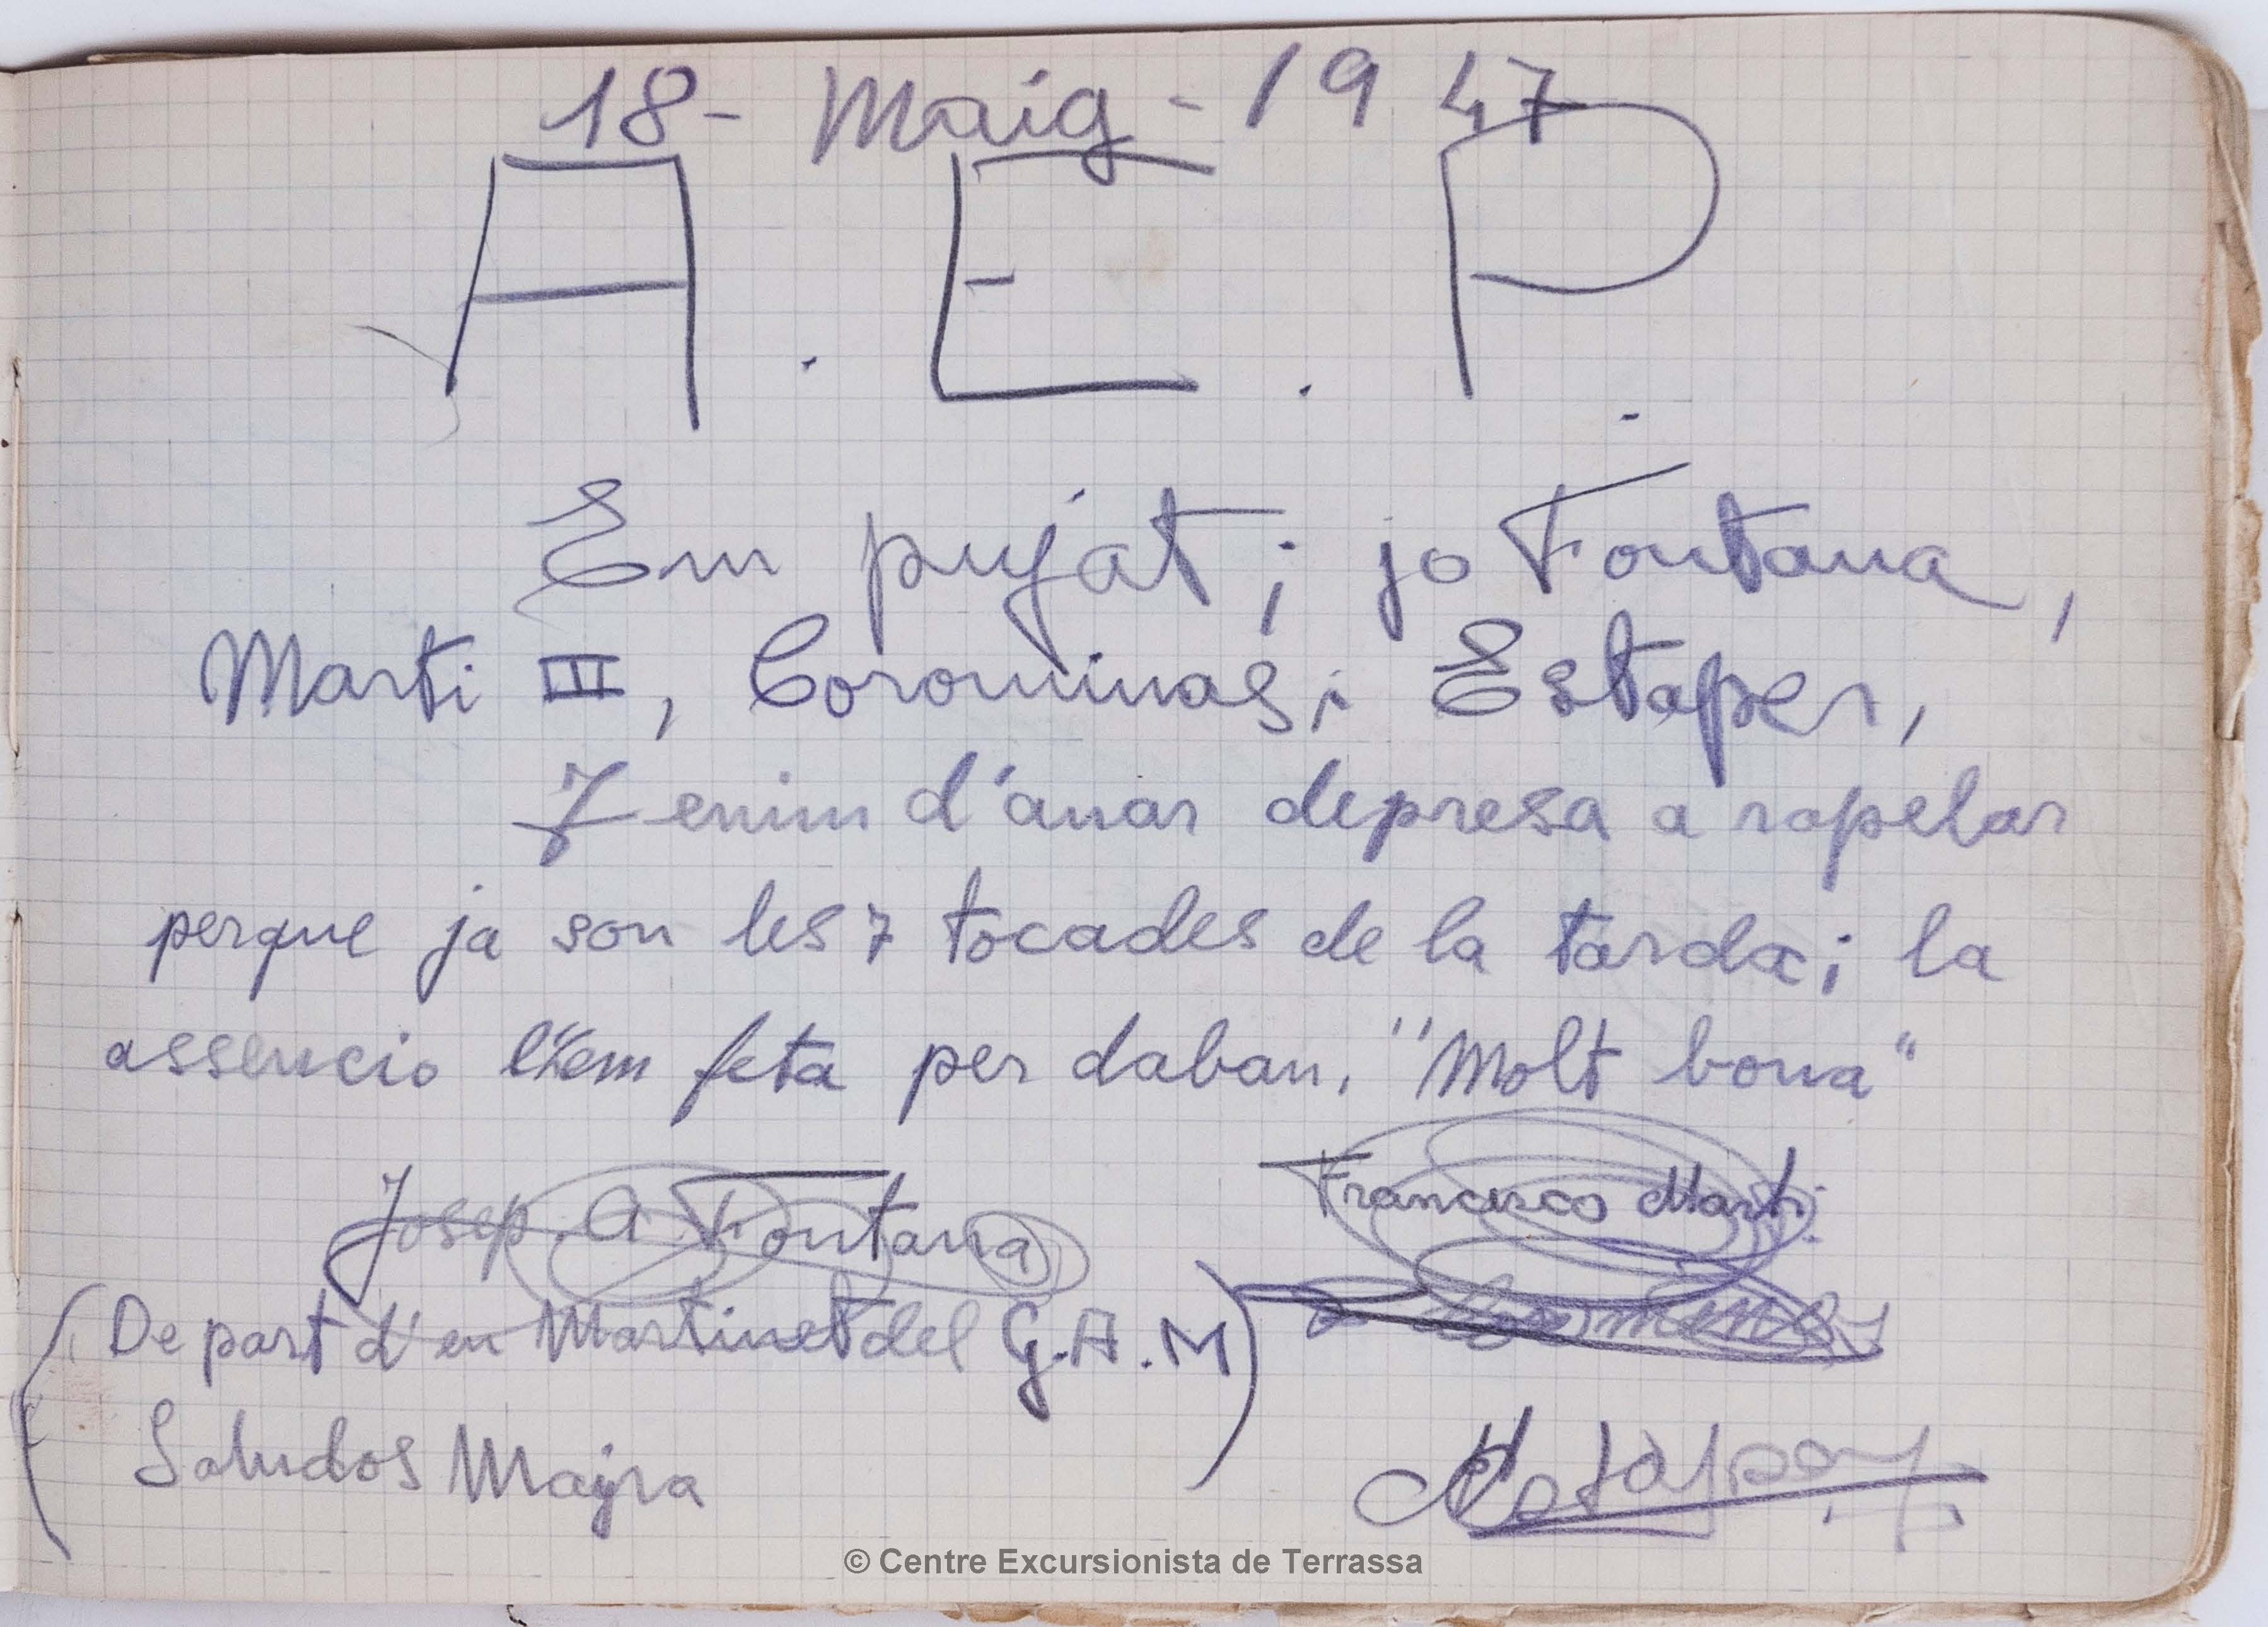 18 - Maig - 1947
A. E. P.
Em pujat; jo Fontana,
Marti III, Corominas i Estaper,
Tenim d'anar depresa a rapelar
perque ja son les 7 tocades de la tarda; la
assencio l'em feta per daban. "Molt bona"
Josep A Fontana
Francisco Marti
Corominas
(De part d'en Martinet del G.A.M)
Saludos Mayra
© Centre Excursionista de Terrassa